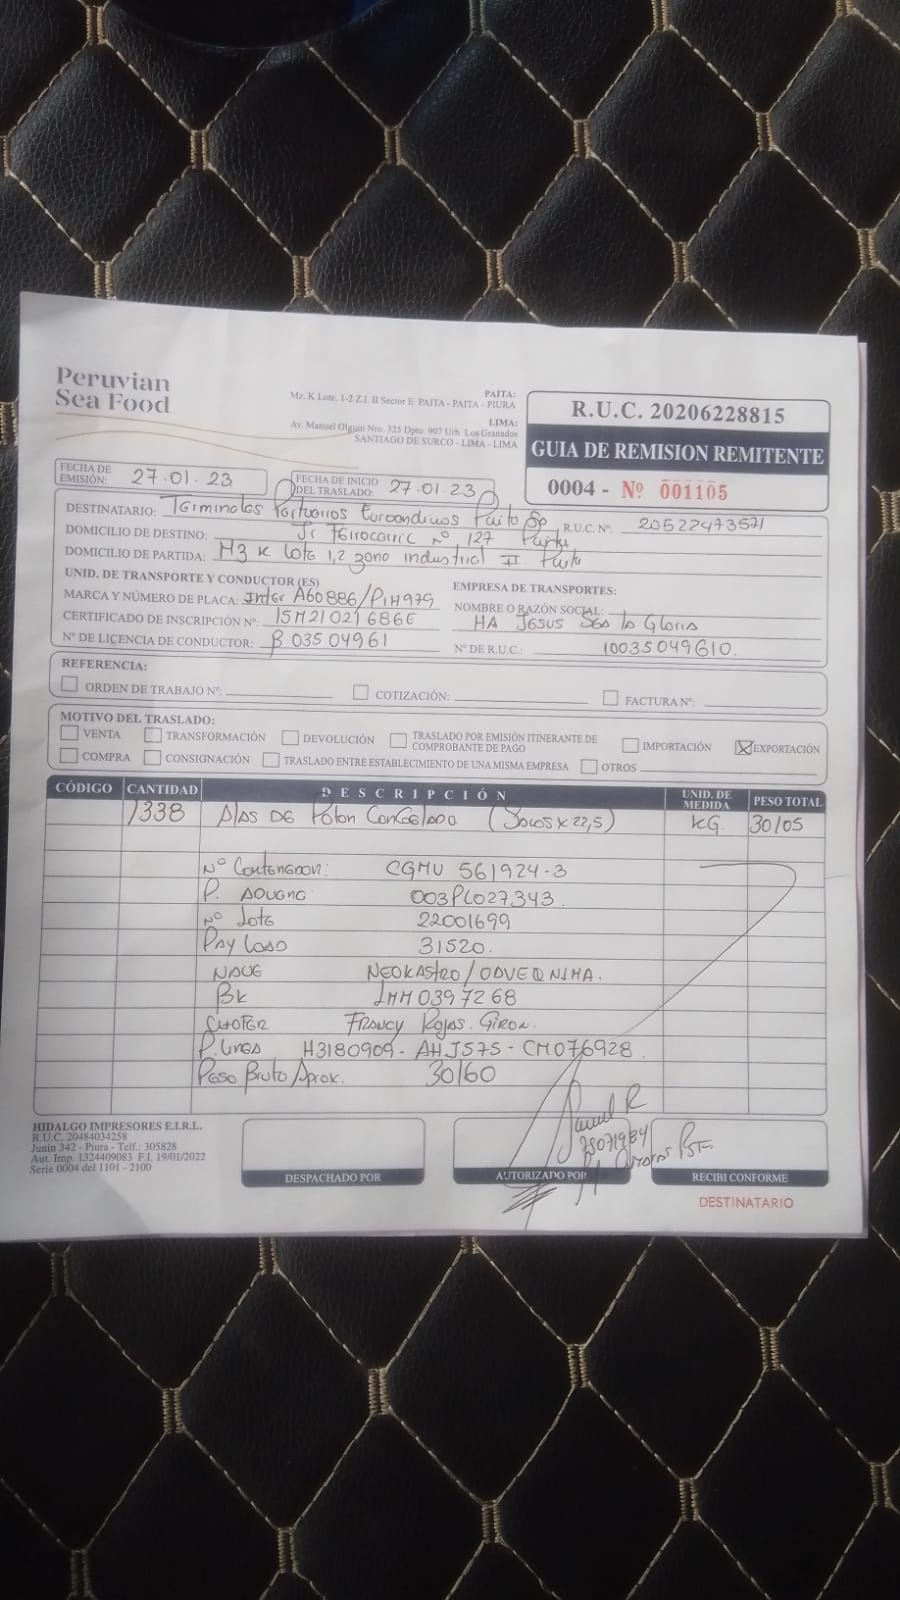 Peruvian
Sea Food
PAITA:
Mz. K Lote, 1-2 Z.I. II Sector E PAITA - PAITA - PIURA
LIMA:
Av. Manuel Olguin Nro. 325 Dpto. 907 Urb. Los Granados
SANTIAGO DE SURCO - LIMA - LIMA
R.U.C. 20206228815
GUIA DE REMISION REMITENTE
0004 - Nº 001105
FECHA DE EMISIÓN: 27.01.23
FECHA DE INICIO DEL TRASLADO: 27.01.23
DESTINATARIO: Terminales Portuarios Euroandinos Paita R.U.C. Nº: 20522473571
DOMICILIO DE DESTINO: Jr Ferrocarril Nº 127 Paita
DOMICILIO DE PARTIDA: Mz K Lote 1,2 zona industrial II Paita
UNID. DE TRANSPORTE Y CONDUCTOR (ES)
MARCA Y NÚMERO DE PLACA: Inter A60886/P1H979
CERTIFICADO DE INSCRIPCIÓN Nº: 15M21021686E
Nº DE LICENCIA DE CONDUCTOR: B 03504961
EMPRESA DE TRANSPORTES:
NOMBRE O RAZÓN SOCIAL:
HA JESUS Sea la Gloria
N° DE R.U.C.: 10035049610.
REFERENCIA:
ORDEN DE TRABAJO Nº: COTIZACIÓN: FACTURA Nº:
MOTIVO DEL TRASLADO:
VENTA TRANSFORMACIÓN DEVOLUCIÓN TRASLADO POR EMISIÓN ITINERANTE DE COMPROBANTE DE PAGO IMPORTACIÓN EXPORTACIÓN
COMPRA CONSIGNACIÓN TRASLADO ENTRE ESTABLECIMIENTO DE UNA MISMA EMPRESA OTROS
CÓDIGO CANTIDAD DESCRIPCIÓN UNID. DE MEDIDA PESO TOTAL
1338 Alas DE Poton Congelado (Sacos x 22,5) KG. 30105
Nº Contenedor: CGMU 561924-3
P. ADUANA 003PL027343.
Nº Lote 22001699
Pay Load 31520.
NAVE NEOKASTRO/ODVEQNIMA.
BK LMM0397268
CHOFER FRANCY ROJAS. GIRON.
P. Linea H3180909 - AHJ575 - CM076928
Peso Bruto Aprox. 30160
HIDALGO IMPRESORES E.I.R.L.
R.U.C. 20484034258
Junín 342 - Piura - Telf.: 305828
Aut. Imp. 1324409083 F.I. 19/01/2022
Serie 0004 del 1101 - 2100
DESPACHADO POR
AUTORIZADO POR
RECIBI CONFORME
DESTINATARIO